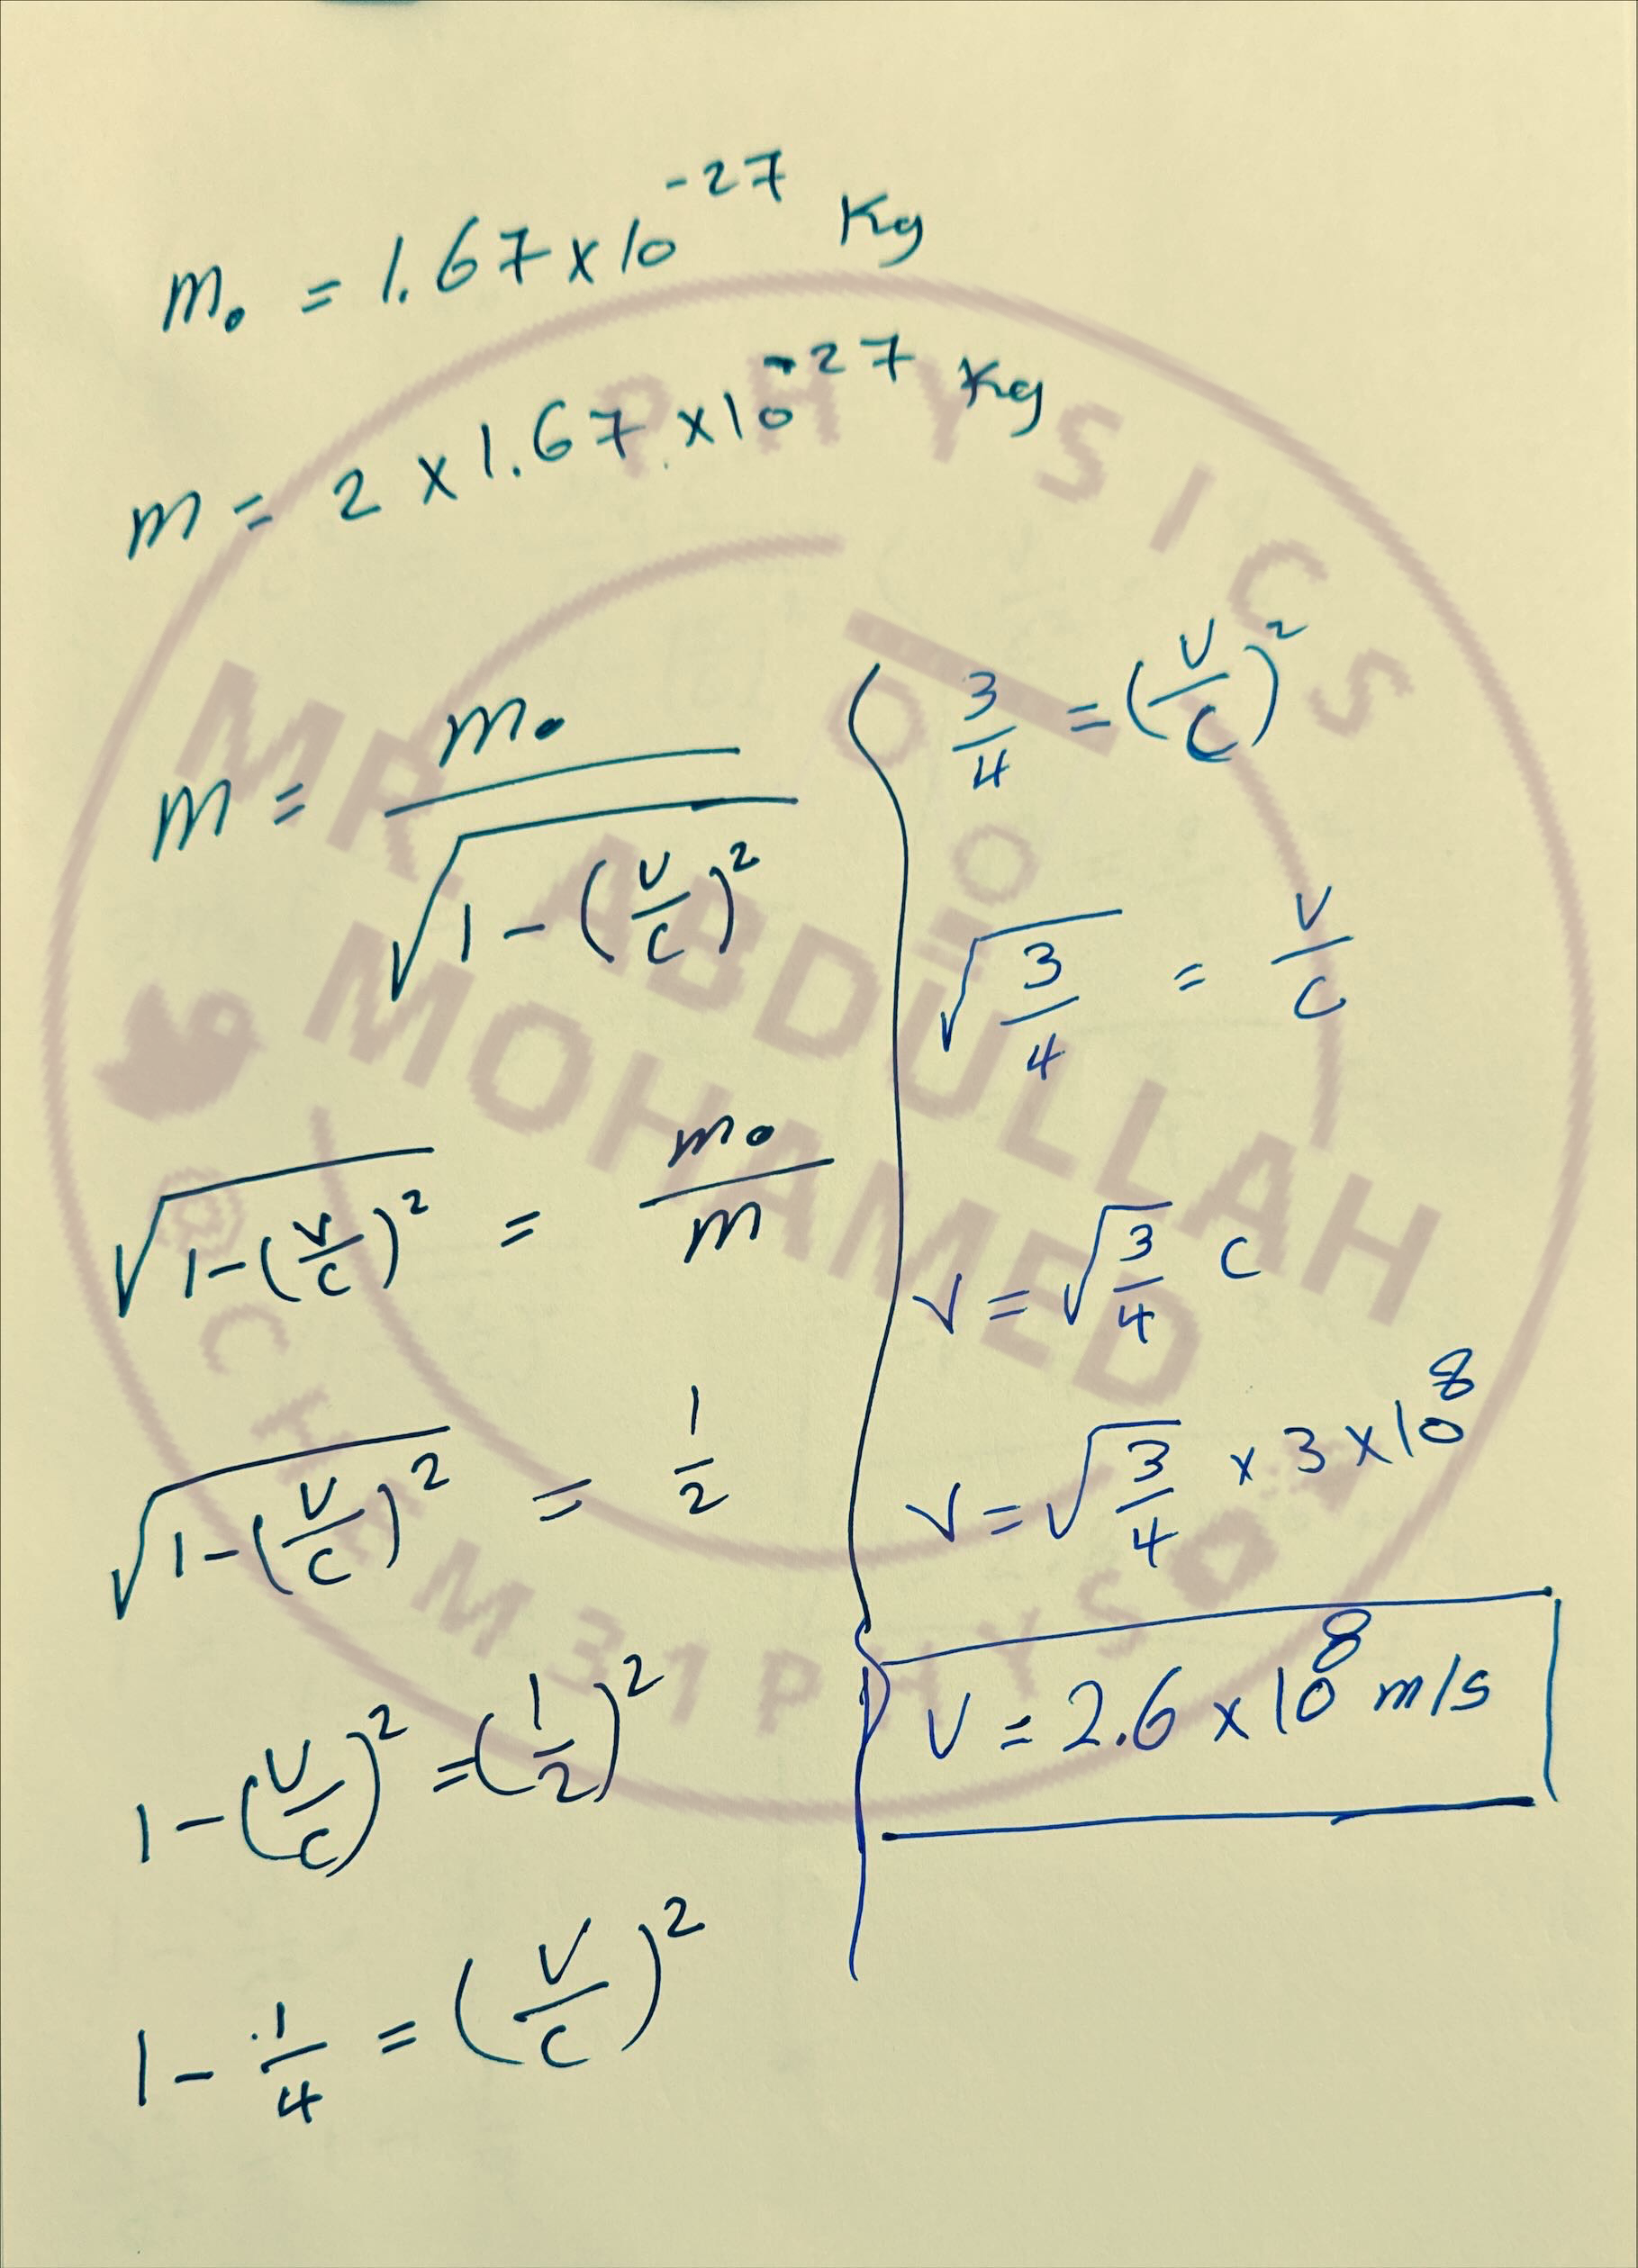 m₀ = 1.67 x 10⁻²⁷ Kg
m = 2 x 1.67 x 10⁻²⁷ Kg
m = m₀ / √(1 - (v/c)²)
√(1 - (v/c)²) = m₀/m
√(1 - (v/c)²) = 1/2
1 - (v/c)² = (1/2)²
1 - 1/4 = (v/c)²
3/4 = (v/c)²
√(3/4) = v/c
v = √(3/4) c
v = √(3/4) x 3 x 10⁸
v = 2.6 x 10⁸ m/s
PHYSICS
MR. ABDULLAH
MOHAMED
@CHEM31PHYS